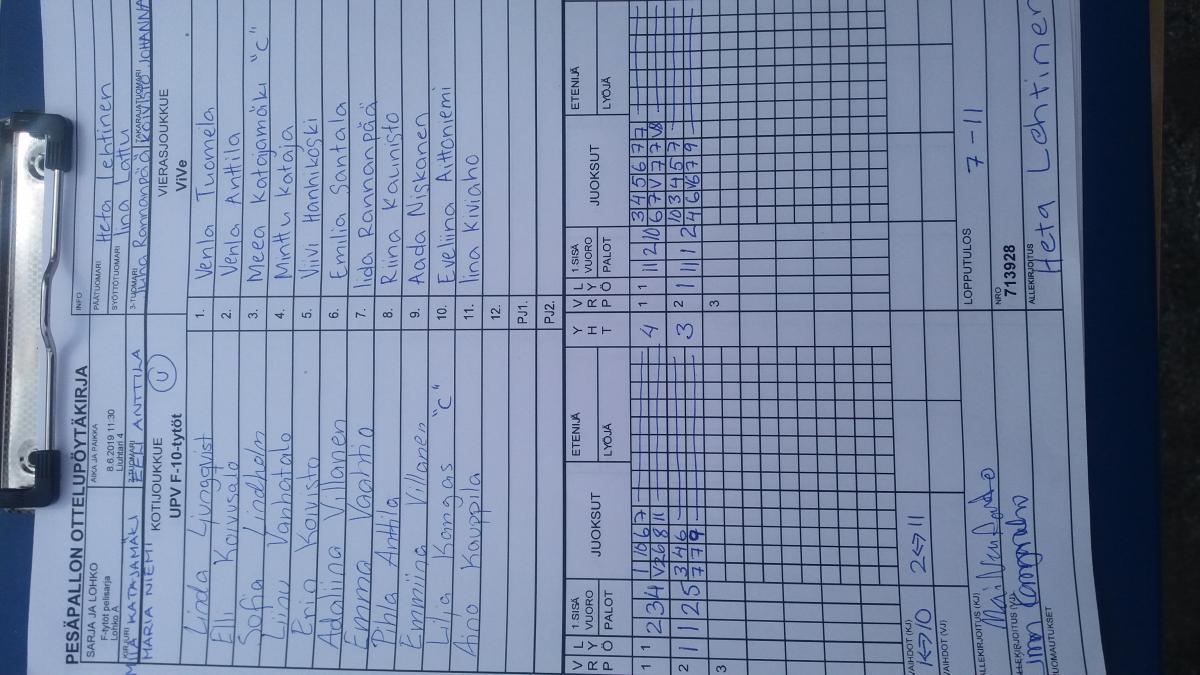 PESÄPALLON OTTELUPÖYTÄKIRJA
SARJA JA LOHKO
F-tytöt pelisarja
Lohko A
AIKA JA PAIKKA
8.6.2019 11:30
Liuhtari 4
INFO
PÄÄTUOMARI Heta Lehtinen
SYÖTTÖTUOMARI Iina Lattu
KIRJURI MIILA KATAJAMÄKI
MARIA NIEMI
2-TUOMARI EELI ANTTILA
3-TUOMARI Juha Rannanpää
TAKARAJATUOMARI KOIVISTO JOHANNA
KOTIJOUKKUE
UPV F-10-tytöt U
VIERASJOUKKUE
ViVe
Linda Ljungqvist 1. Venla Tuomela
Elli Koivusalo 2. Venla Anttila
Sofia Lindholm 3. Meea Katajamäki "C"
Liinu Vanhatalo 4. Minttu Kataja
Enia Koivisto 5. Viivi Hanhikoski
Adaliina Villanen 6. Emilia Santala
Emma Vaahtio 7. Iida Rannanpää
Pihla Anttila 8. Riina Kaunisto
Emmiina Villanen 9. Aada Niskanen
Lilja Kangas "C" 10. Eveliina Aittoniemi
Aino Kauppila 11. Iina Kiviaho
12.
PJ1.
PJ2.
V R L Y P Ö 1.SISÄ VUORO PALOT JUOKSUT ETENIJÄ LYÖJÄ Y H T V R L Y P Ö 1.SISÄ VUORO PALOT JUOKSUT ETENIJÄ LYÖJÄ
1 1 2 3 4 1 10 6 7 4 1 1 11 2 10 3 4 5 6 7 7
V 2 6 8 11 6 7 V 7 7 V8
2 1 1 2 5 3 4 6 3 2 1 11 1 2 10 3 4 5 7
7 7 9 4 6 V6 7 9
3 3
VAIHDOT (KJ)
1<->10 2<->11
VAIHDOT (VJ)
LOPPUTULOS 7 - 11
ALLEKIRJOITUS (KJ)
ALLEKIRJOITUS (VJ)
NRO
713928
ALLEKIRJOITUS
Heta Lehtinen
HUOMAUTUKSET